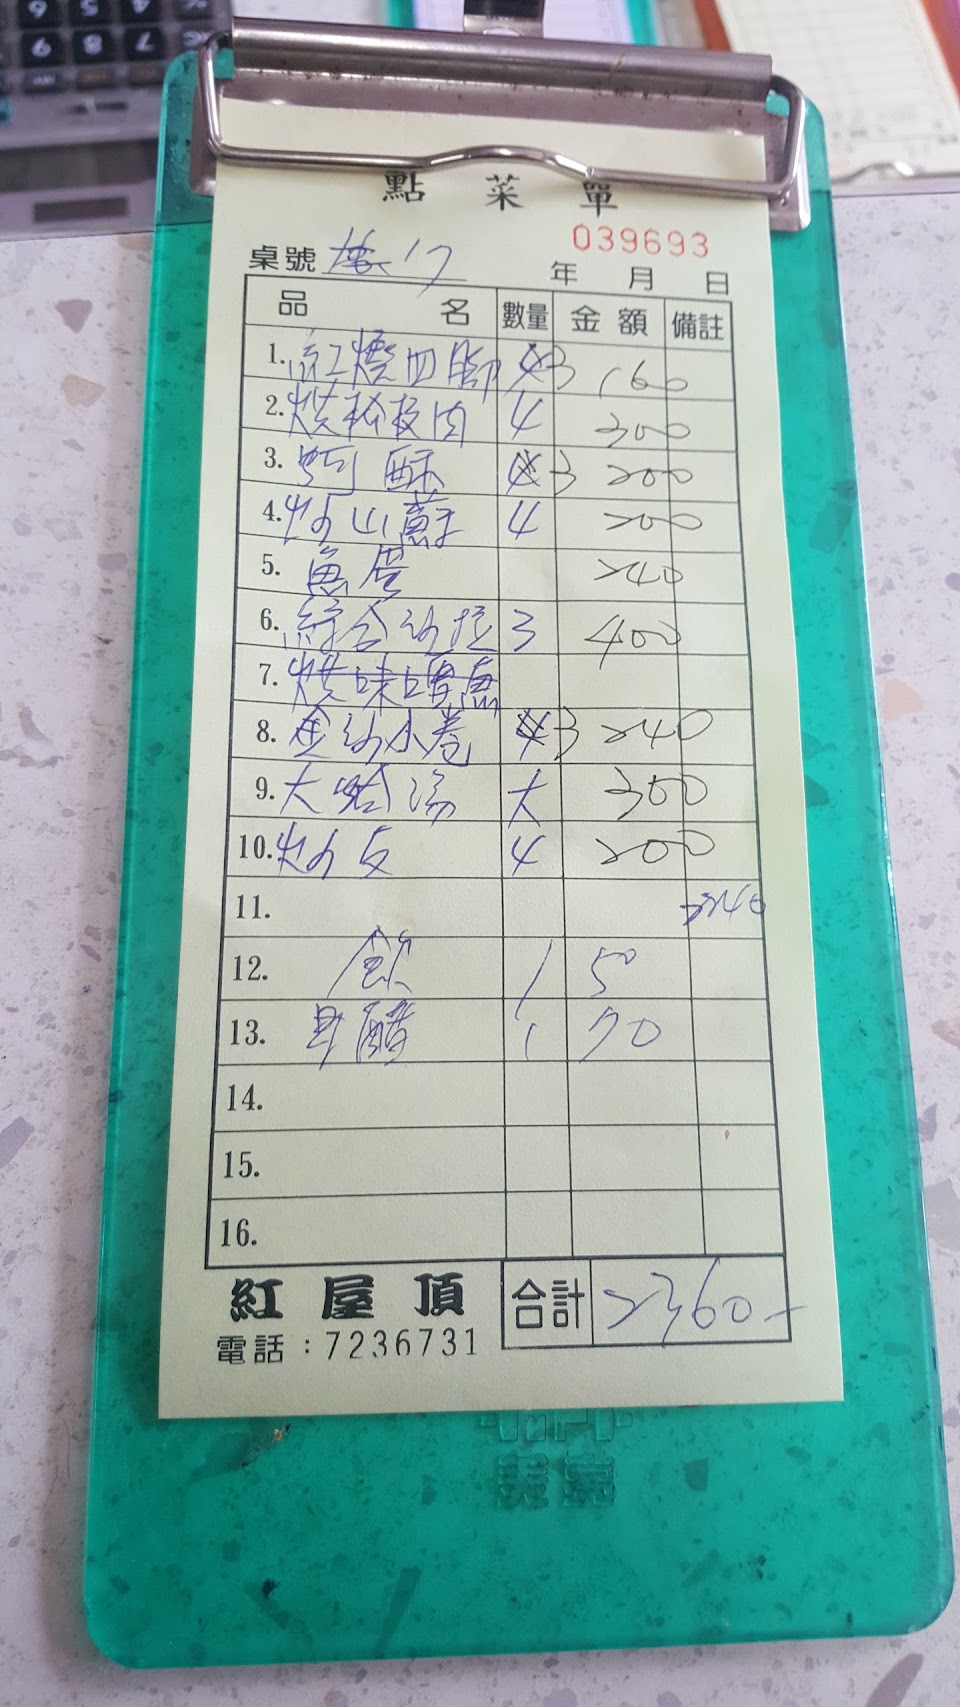 點菜單
039693
桌號 17
年 月 日
品名 數量 金額 備註
1. 紅燒四腳 3 160
2. 松板肉 4 300
3. 蚵酥 3 200
4. 炒山蘇 4 200
5. 魚蛋 240
6. 綜合沙拉 3 400
7.
8. 金沙小卷 3 240
9. 大蛤湯 大 300
10. 炒 4 200
11. 2240
12. 飲 1 50
13. 醋 1 70
14.
15.
16.
紅屋頂 合計 2360-
電話：7236731